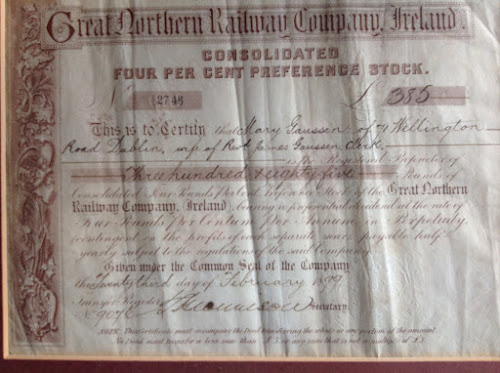 Great Northern Railway Company, Ireland.
CONSOLIDATED
FOUR PER CENT PREFERENCE STOCK.
No 2748 £ 385
This is to Certify that Mary Gaussen of 71 Wellington
Road Dublin, wife of Revd James Gaussen Clerk.
is the Registered Proprietor of
Three hundred & eighty five Pounds of
Consolidated Four Pounds Per Cent Preference Stock of the Great Northern
Railway Company, (Ireland), bearing a preferential dividend at the rate of
Four Pounds Per Centum Per Annum in Perpetuity,
(contingent on the profits of each separate year), payable half
yearly subject to the regulations of the said Company.
Given under the Common Seal of the Company
the Twenty third day of February
Secretary.
NOTE: This Certificate must accompany the Deed transferring the whole or any portion of the amount.
No Deed must transfer a less sum than £ 5 or any sum that is not a multiple of £1.